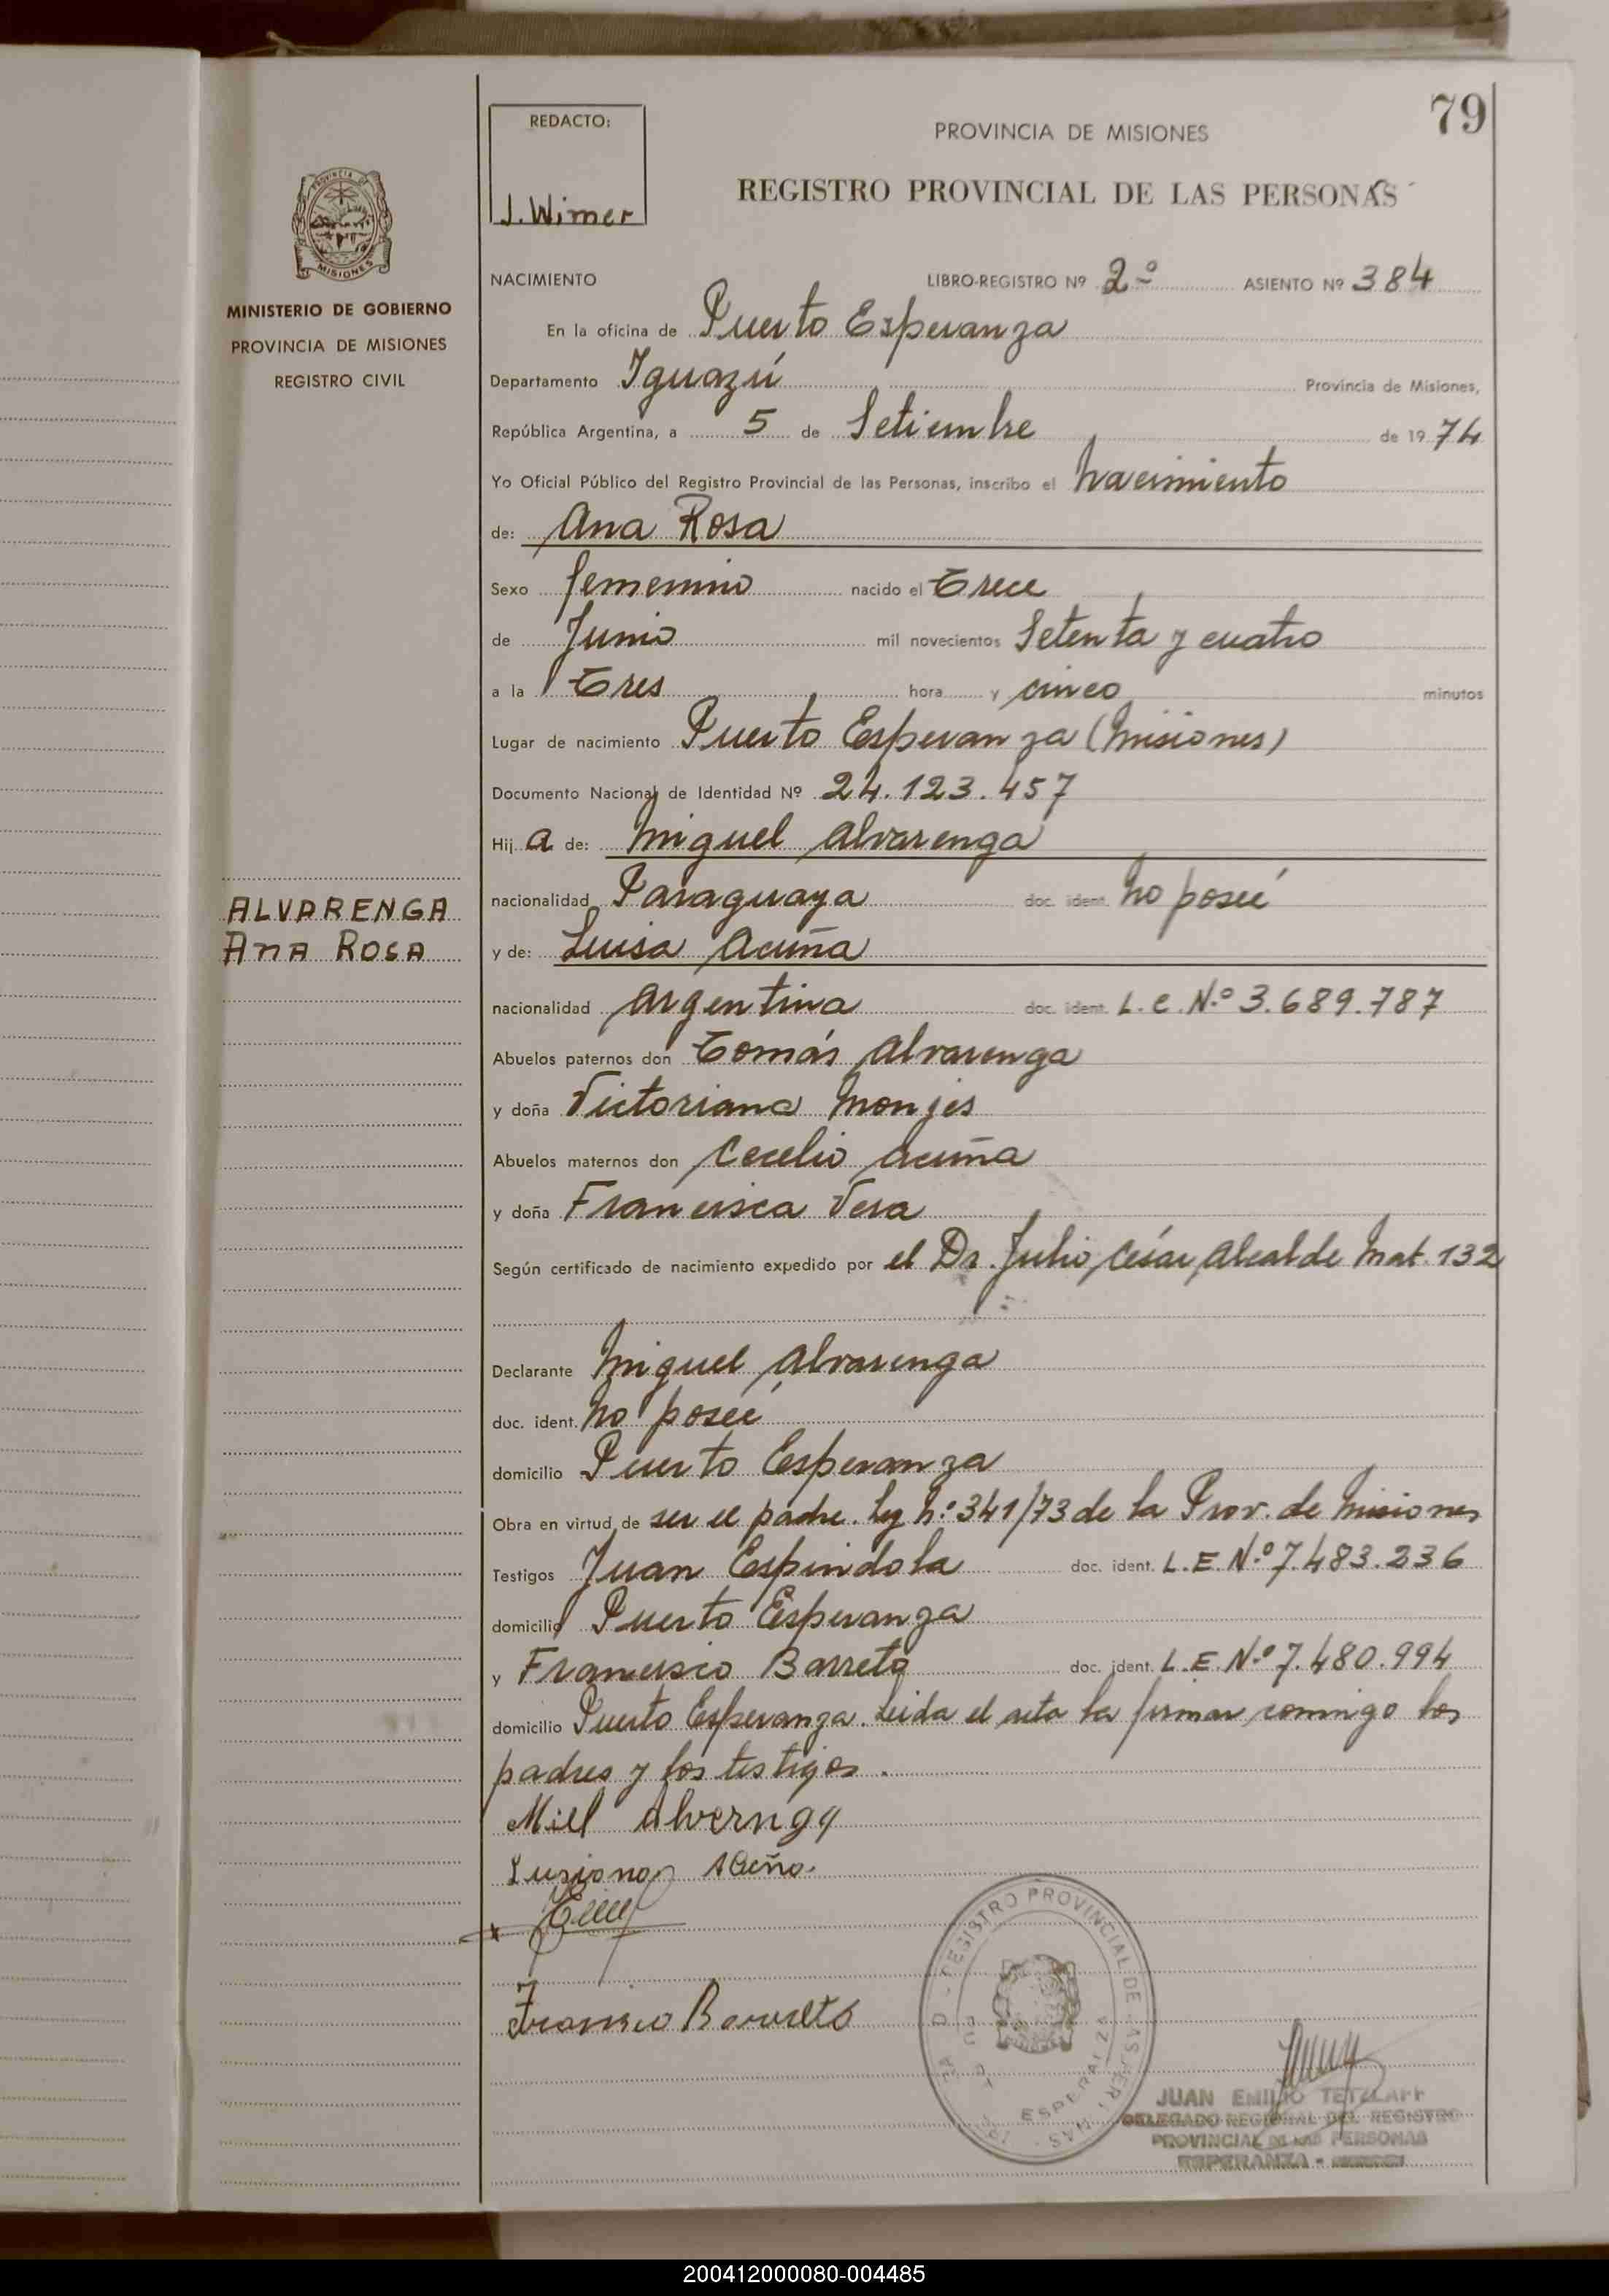 79
REDACTO:
J. Wimer
PROVINCIA DE MISIONES
REGISTRO PROVINCIAL DE LAS PERSONAS
PROVINCIA DE
MISIONES
MINISTERIO DE GOBIERNO
PROVINCIA DE MISIONES
REGISTRO CIVIL
ALVARENGA
ANA ROSA
NACIMIENTO LIBRO-REGISTRO Nº 2º ASIENTO Nº 384
En la oficina de Puerto Esperanza
Departamento Iguazú Provincia de Misiones,
República Argentina, a 5 de Setiembre de 19 74
Yo Oficial Público del Registro Provincial de las Personas, inscribo el nacimiento
de: Ana Rosa
Sexo femenino nacido el Trece
de Junio mil novecientos Setenta y cuatro
a la Tres hora y cinco minutos
Lugar de nacimiento Puerto Esperanza (Misiones)
Documento Nacional de Identidad Nº 24.123.457
Hij a de: Miguel Alvarenga
nacionalidad Paraguaya doc. ident. no poseé
y de: Luisa Acuña
nacionalidad Argentina doc. ident. L.C. N.º 3.689.787
Abuelos paternos don Tomás Alvarenga
y doña Victoriana Monjes
Abuelos maternos don Cecelio Acuña
y doña Francisca Vera
Según certificado de nacimiento expedido por el Dr. Julio César Alcalde Mat. 132
Declarante Miguel Alvarenga
doc. ident. no poseé
domicilio Puerto Esperanza
Obra en virtud de ser el padre. Ley N.º 341/73 de la Prov. de Misiones
Testigos Juan Espindola doc. ident. L.E. N.º 7.483.236
domicilio Puerto Esperanza
y Francisco Barreto doc. ident. L.E. N.º 7.480.994
domicilio Puerto Esperanza. Leida el acta la firman comigo los
padres y los testigos.
Miel Alverngy
Lusiana Aceña.
Fransico Barreto
REGISTRO PROVINCIAL DE LAS PERSONAS
ESPERANZA
JUAN EMILIO TETZLAFF
DELEGADO REGIONAL DEL REGISTRO
PROVINCIAL DE LAS PERSONAS
ESPERANZA -
200412000080-004485